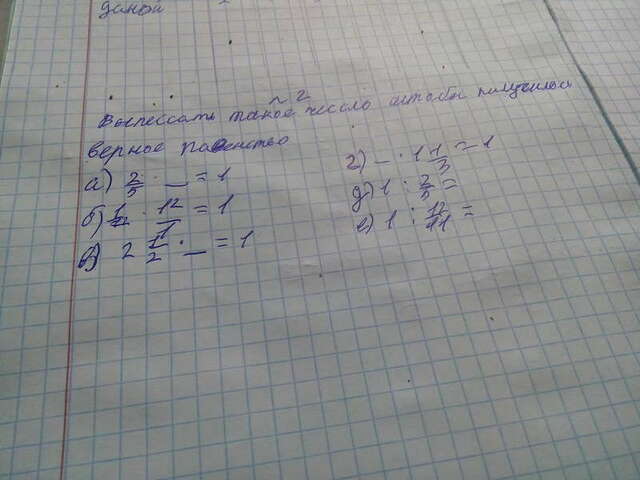 данои
№ 2
Выпессать такое чессло чтобы получилось
верное равенство
а) 2/5 · _ = 1
б) · 12/1 = 1
в) 2 1/2 · _ = 1
г) _ · 1 1/3 = 1
д) 1 : 2/5 =
е) 1 : 12/11 =